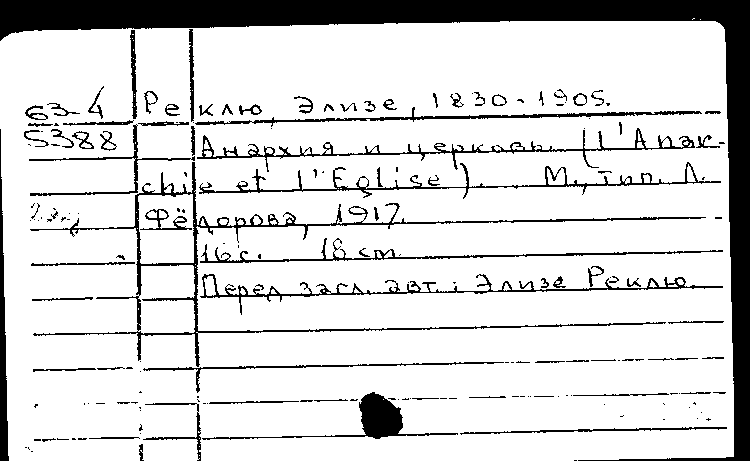 63-4 Реклю, Элизе, 1830-1905.
5388 Анархия и церковь (L'Anar-
chie et l'Eglise). М., тип. Л.
2 экз Фёдорова, 1917.
16 с. 18 cm
Перед загл. авт.: Элизе Реклю.